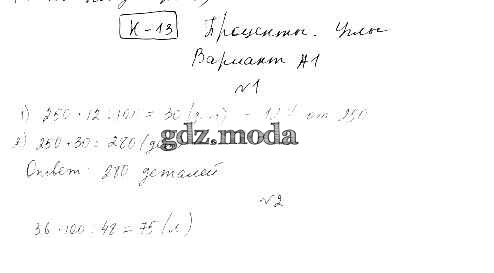 К-13 Проценты. Углы
Вариант А1
№1
1) 250 · 12 : 100 = 30 (д.) - 12% от 250
2) 250 + 30 = 280 (де
gdz.moda
Ответ: 280 деталей
№2
36 · 100 : 48 = 75 (л)